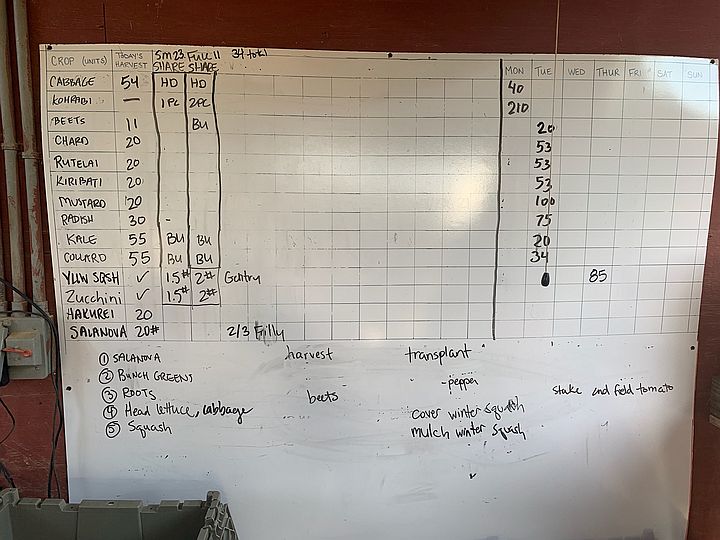 Sm 23 Full 11 34 total
CROP (UNITS) TODAY'S HARVEST SHARE SHARE MON TUE WED THUR FRI SAT SUN
CABBAGE 54 HD HD 40
KOHRABI — 1PC 2PC 210
BEETS 11 BU 20
CHARD 20 53
RUTELAI 20 53
KIRIBATI 20 53
MUSTARD 20 100
RADISH 30 - 75
KALE 55 BU BU 20
COLLARD 55 BU BU 34
YLLW SQSH ✓ 1.5# 2# Gentry 85
Zucchini ✓ 1.5# 2#
HAKUREI 20
SALANOVA 20# 2/3 Filly
① SALANOVA harvest transplant
② BUNCH GREENS -pepper
③ ROOTS beets stake end field tomato
④ Head lettuce, cabbage cover winter squash
⑤ Squash mulch winter squash